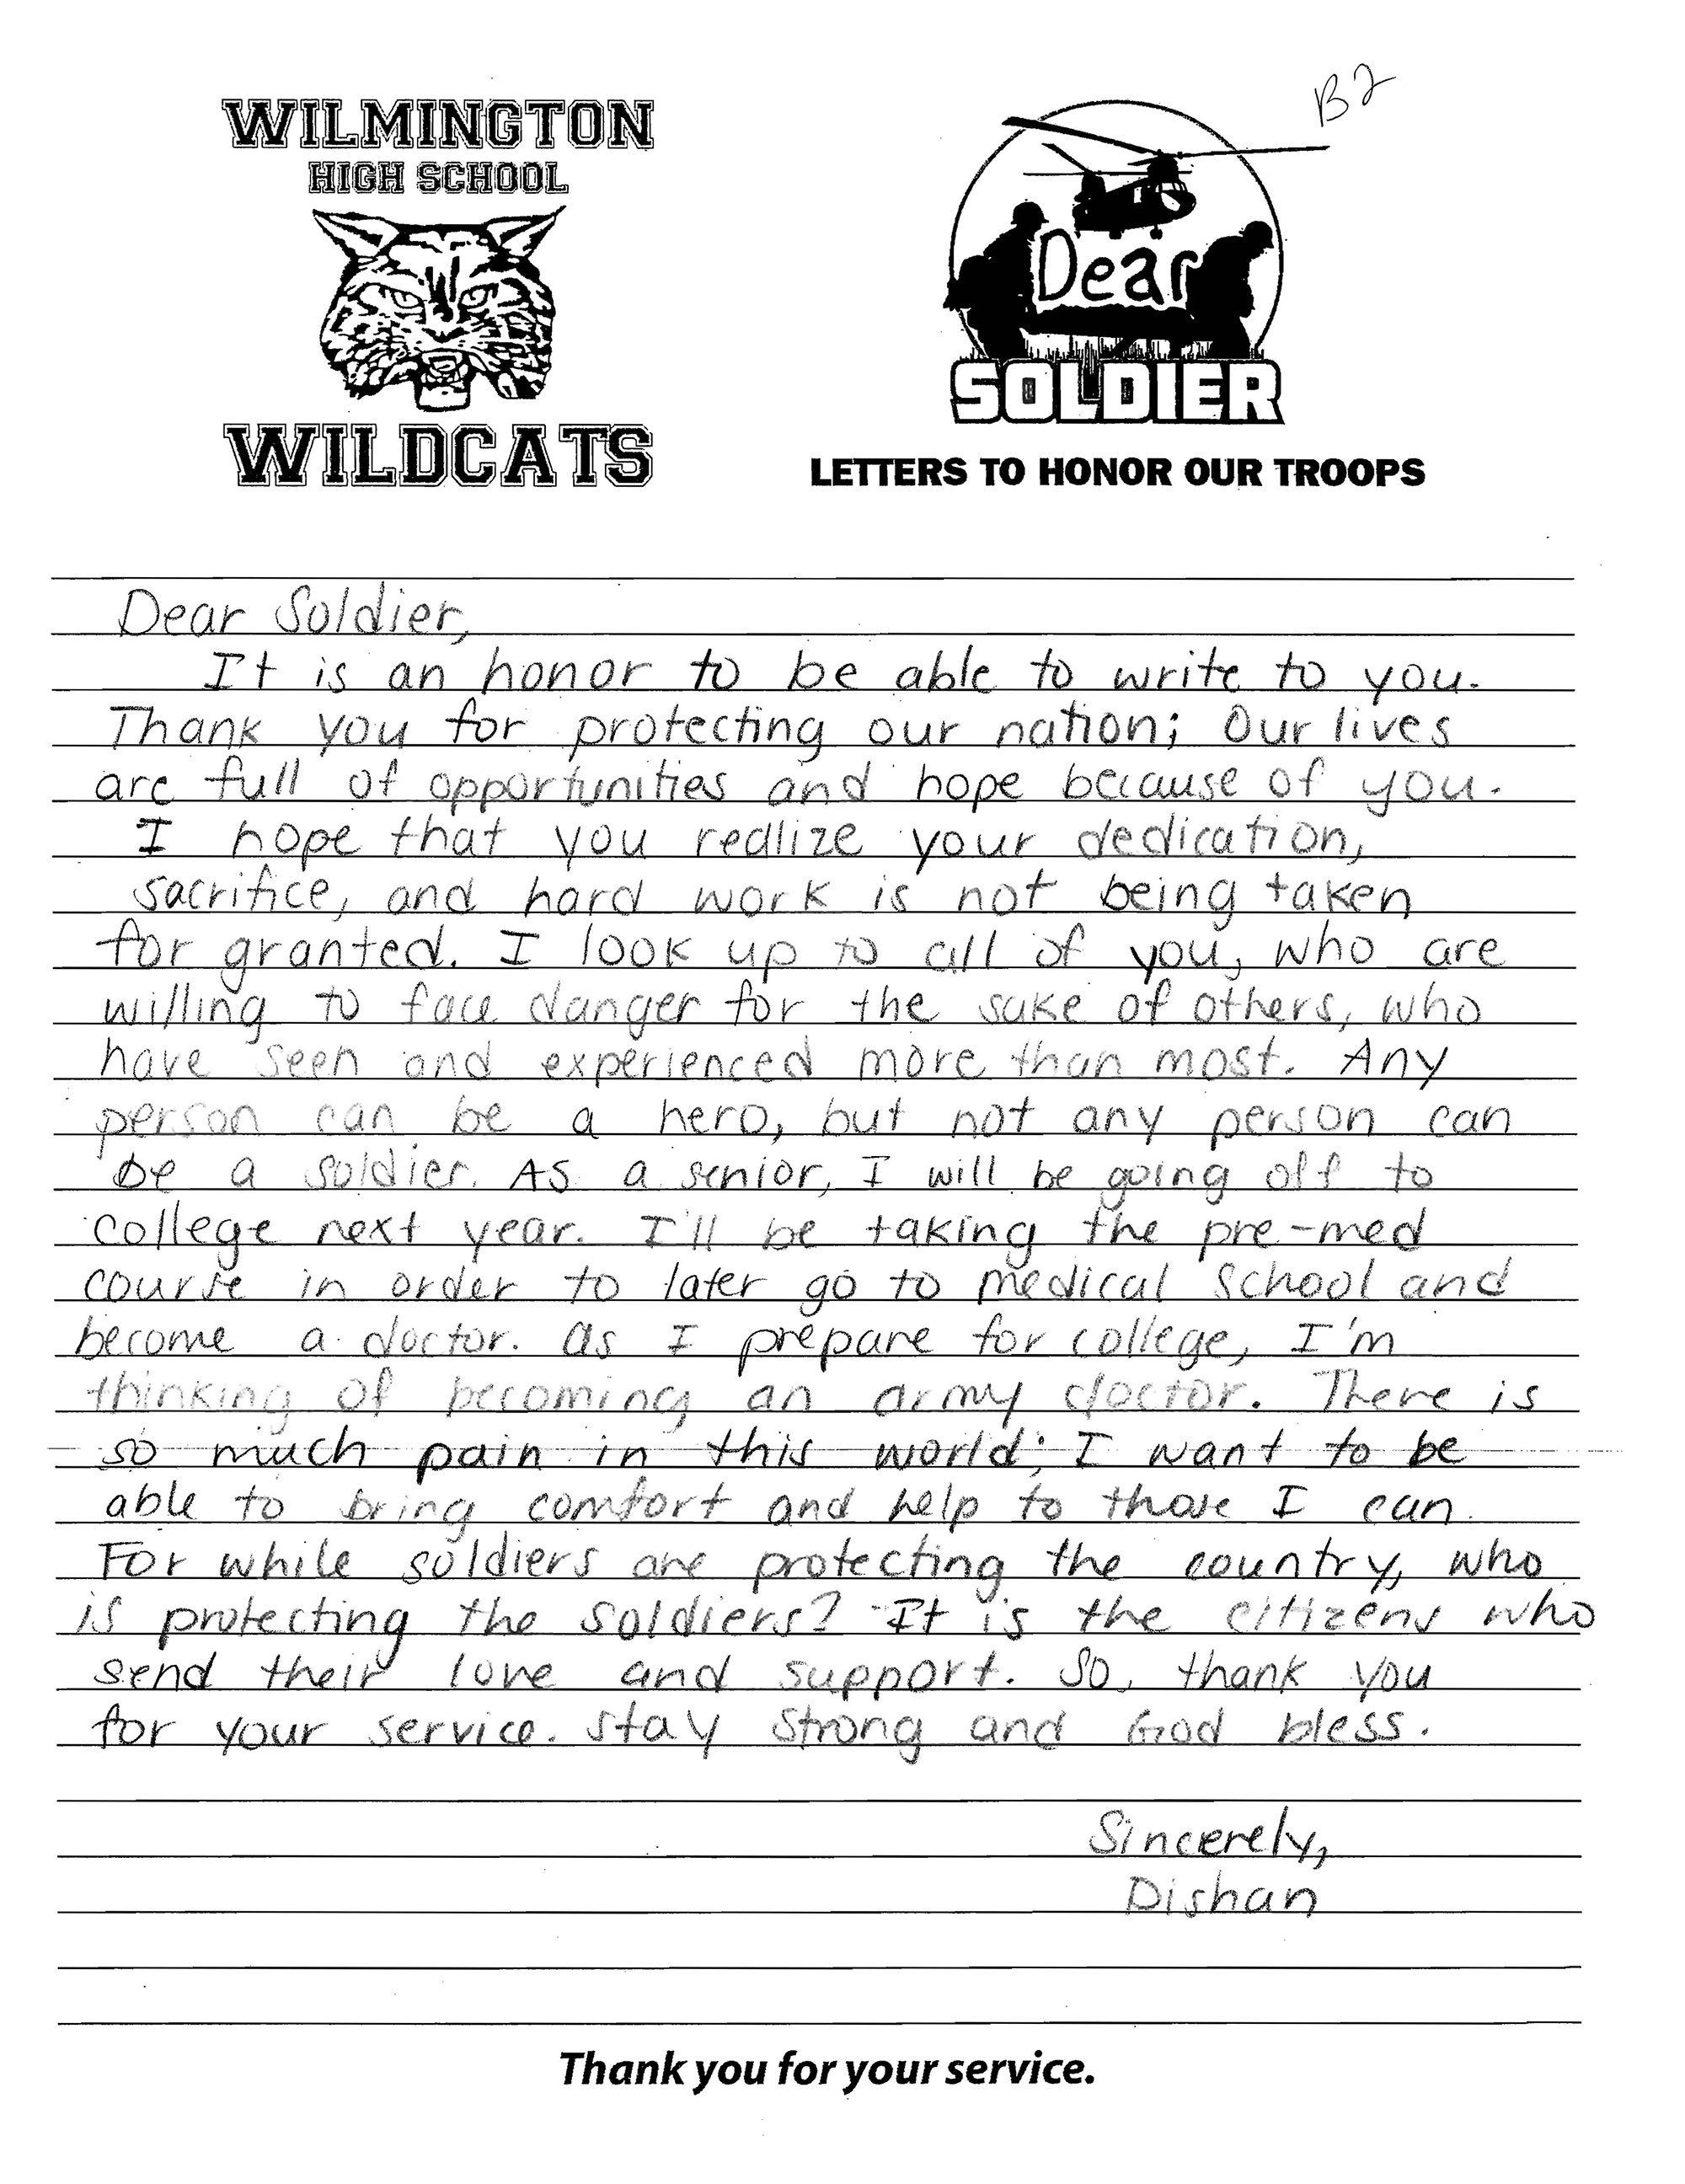 B2
WILMINGTON
HIGH SCHOOL
WILDCATS
Dear
SOLDIER
LETTERS TO HONOR OUR TROOPS
Dear Soldier,
It is an honor to be able to write to you.
Thank you for protecting our nation; Our lives
are full of opportunities and hope because of you.
I hope that you realize your dedication,
sacrifice, and hard work is not being taken
for granted. I look up to all of you, who are
willing to face danger for the sake of others, who
have seen and experienced more than most. Any
person can be a hero, but not any person can
be a soldier. As a senior, I will be going off to
college next year. I'll be taking the pre-med
course in order to later go to medical school and
become a doctor. As I prepare for college, I'm
thinking of becoming an army doctor. There is
so much pain in this world; I want to be
able to bring comfort and help to those I can.
For while soldiers are protecting the country, who
is protecting the soldiers? It is the citizens who
send their love and support. So, thank you
for your service. Stay strong and God bless.
Sincerely,
Dishan
Thank you for your service.